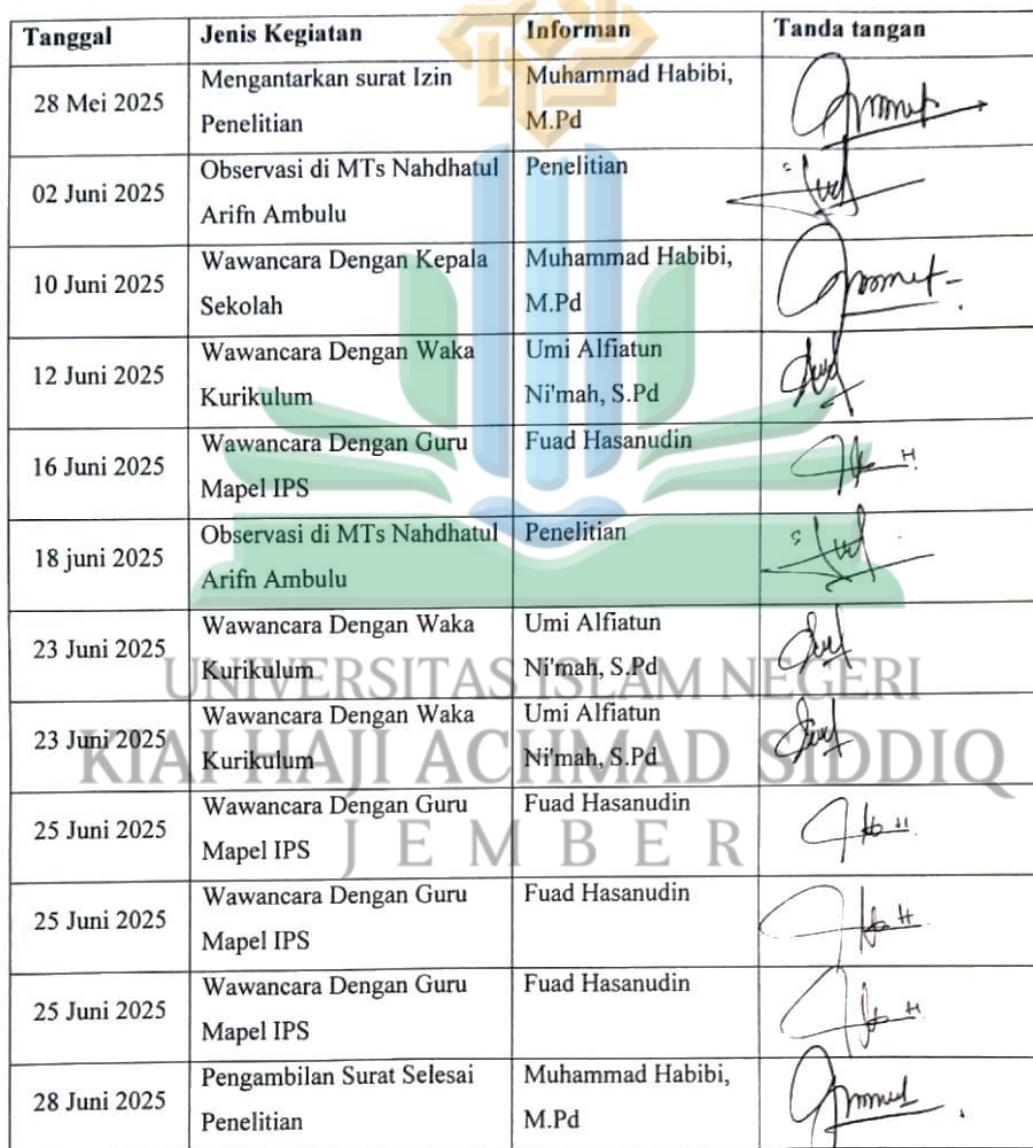 Tanggal Jenis Kegiatan Informan Tanda tangan
28 Mei 2025 Mengantarkan surat Izin Penelitian Muhammad Habibi, M.Pd
02 Juni 2025 Observasi di MTs Nahdhatul Arifn Ambulu Penelitian
10 Juni 2025 Wawancara Dengan Kepala Sekolah Muhammad Habibi, M.Pd
12 Juni 2025 Wawancara Dengan Waka Kurikulum Umi Alfiatun Ni'mah, S.Pd
16 Juni 2025 Wawancara Dengan Guru Mapel IPS Fuad Hasanudin
18 juni 2025 Observasi di MTs Nahdhatul Arifn Ambulu Penelitian
23 Juni 2025 Wawancara Dengan Waka Kurikulum Umi Alfiatun Ni'mah, S.Pd
UNIVERSITAS ISLAM NEGERI
23 Juni 2025 Wawancara Dengan Waka Kurikulum Umi Alfiatun Ni'mah, S.Pd
KIAI HAJI ACHMAD SIDDIQ
25 Juni 2025 Wawancara Dengan Guru Mapel IPS Fuad Hasanudin
JEMBER
25 Juni 2025 Wawancara Dengan Guru Mapel IPS Fuad Hasanudin
25 Juni 2025 Wawancara Dengan Guru Mapel IPS Fuad Hasanudin
28 Juni 2025 Pengambilan Surat Selesai Penelitian Muhammad Habibi, M.Pd